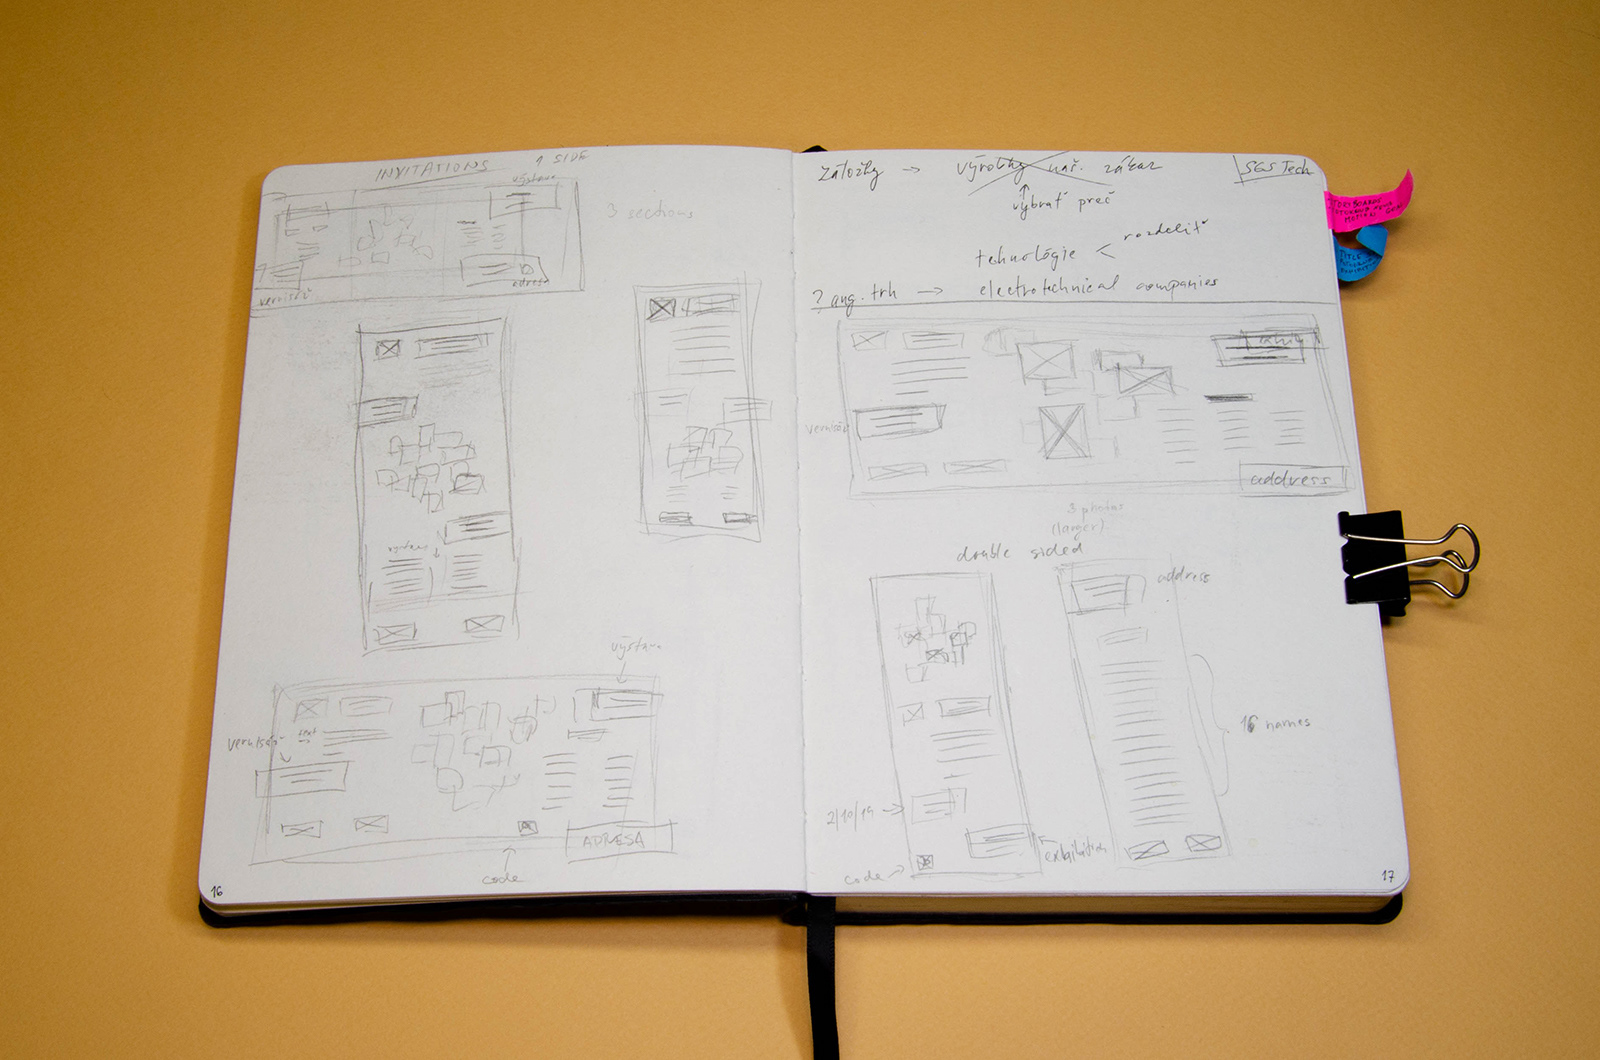 INVITATIONS
1 SIDE
výstava
3 sections
vernisáž
adresa
výstava
výstava
vernisáž
text
ADRESA
code
16
záložky → výrobky nař. zákaz
SGS Tech
vybrať preč
technológie < rozdeliť
? ang. trh → electrotechnical companies
vernisáž
address
3 photos
(larger)
double sided
address
16 names
2/10/19
exhibition
code
17
STORYBOARDS
TITLE